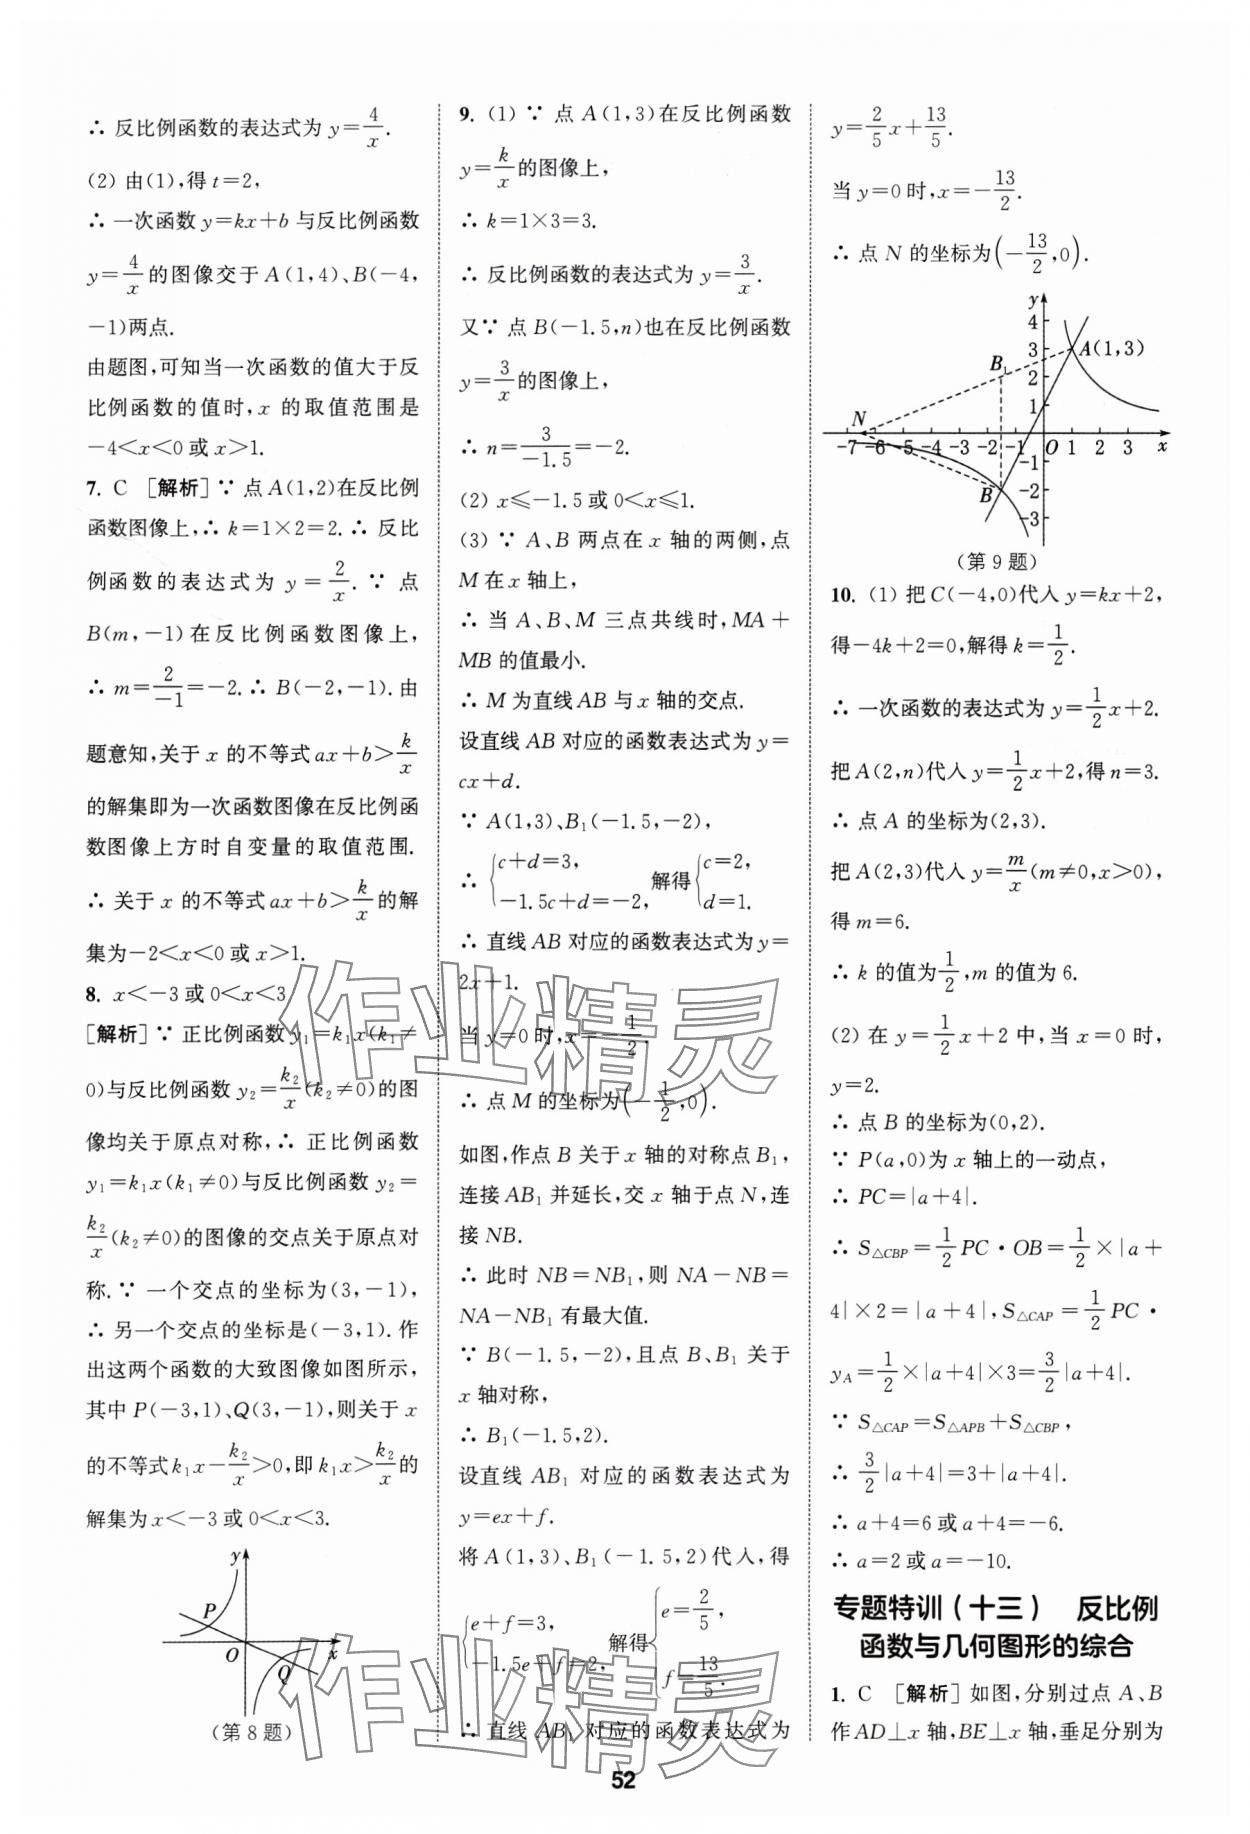 ∴ 反比例函数的表达式为 y=4/x.
(2) 由(1),得 t=2,
∴ 一次函数 y=kx+b 与反比例函数
y=4/x 的图像交于 A(1,4)、B(-4,
-1)两点.
由题图,可知当一次函数的值大于反
比例函数的值时,x 的取值范围是
-4<x<0 或 x>1.
7. C [解析] ∵ 点 A(1,2)在反比例
函数图像上,∴ k=1×2=2. ∴ 反比
例函数的表达式为 y=2/x. ∵ 点
B(m,-1)在反比例函数图像上,
∴ m=2/-1=-2. ∴ B(-2,-1). 由
题意知,关于 x 的不等式 ax+b>k/x
的解集即为一次函数图像在反比例函
数图像上方时自变量的取值范围.
∴ 关于 x 的不等式 ax+b>k/x 的解
集为-2<x<0 或 x>1.
8. x<-3 或 0<x<3
[解析] ∵ 正比例函数 y₁=k₁x(k₁≠
0)与反比例函数 y₂=k₂/x(k₂≠0)的图
像均关于原点对称,∴ 正比例函数
y₁=k₁x(k₁≠0)与反比例函数 y₂=
k₂/x(k₂≠0)的图像的交点关于原点对
称. ∵ 一个交点的坐标为(3,-1),
∴ 另一个交点的坐标是(-3,1). 作
出这两个函数的大致图像如图所示,
其中 P(-3,1)、Q(3,-1),则关于 x
的不等式 k₁x-k₂/x>0,即 k₁x>k₂/x 的
解集为 x<-3 或 0<x<3.
y
P
O
x
Q
(第 8 题)
9. (1) ∵ 点 A(1,3)在反比例函数
y=k/x 的图像上,
∴ k=1×3=3.
∴ 反比例函数的表达式为 y=3/x.
又∵ 点 B(-1.5,n)也在反比例函数
y=3/x 的图像上,
∴ n=3/-1.5=-2.
(2) x≤-1.5 或 0<x≤1.
(3) ∵ A、B 两点在 x 轴的两侧,点
M 在 x 轴上,
∴ 当 A、B、M 三点共线时,MA+
MB 的值最小.
∴ M 为直线 AB 与 x 轴的交点.
设直线 AB 对应的函数表达式为 y=
cx+d.
∵ A(1,3)、B₁(-1.5,-2),
∴ {c+d=3, -1.5c+d=-2, 解得 {c=2, d=1.
∴ 直线 AB 对应的函数表达式为 y=
2x+1.
当 y=0 时,x=-1/2.
∴ 点 M 的坐标为(-1/2,0).
如图,作点 B 关于 x 轴的对称点 B₁,
连接 AB₁ 并延长,交 x 轴于点 N,连
接 NB.
∴ 此时 NB=NB₁,则 NA-NB=
NA-NB₁ 有最大值.
∵ B(-1.5,-2),且点 B、B₁ 关于
x 轴对称,
∴ B₁(-1.5,2).
设直线 AB₁ 对应的函数表达式为
y=ex+f.
将 A(1,3)、B₁(-1.5,2)代入,得
{e+f=3, -1.5e+f=2, 解得 {e=2/5, f=13/5.
∴ 直线 AB₁ 对应的函数表达式为
y=2/5x+13/5.
当 y=0 时,x=-13/2.
∴ 点 N 的坐标为(-13/2,0).
y
4
3
2
1
A(1,3)
B₁
N
-7 -6 -5 -4 -3 -2 -1 O 1 2 3 x
-1
-2
-3
B
(第 9 题)
10. (1) 把 C(-4,0)代入 y=kx+2,
得-4k+2=0,解得 k=1/2.
∴ 一次函数的表达式为 y=1/2x+2.
把 A(2,n)代入 y=1/2x+2,得 n=3.
∴ 点 A 的坐标为(2,3).
把 A(2,3)代入 y=m/x(m≠0,x>0),
得 m=6.
∴ k 的值为1/2,m 的值为 6.
(2) 在 y=1/2x+2 中,当 x=0 时,
y=2.
∴ 点 B 的坐标为(0,2).
∵ P(a,0)为 x 轴上的一动点,
∴ PC=|a+4|.
∴ S△CBP=1/2PC·OB=1/2×|a+
4|×2=|a+4|,S△CAP=1/2PC·
yA=1/2×|a+4|×3=3/2|a+4|.
∵ S△CAP=S△APB+S△CBP,
∴ 3/2|a+4|=3+|a+4|.
∴ a+4=6 或 a+4=-6.
∴ a=2 或 a=-10.
专题特训(十三) 反比例
函数与几何图形的综合
1. C [解析] 如图,分别过点 A、B
作 AD⊥x 轴,BE⊥x 轴,垂足分别为
52
作业精灵
作业精灵